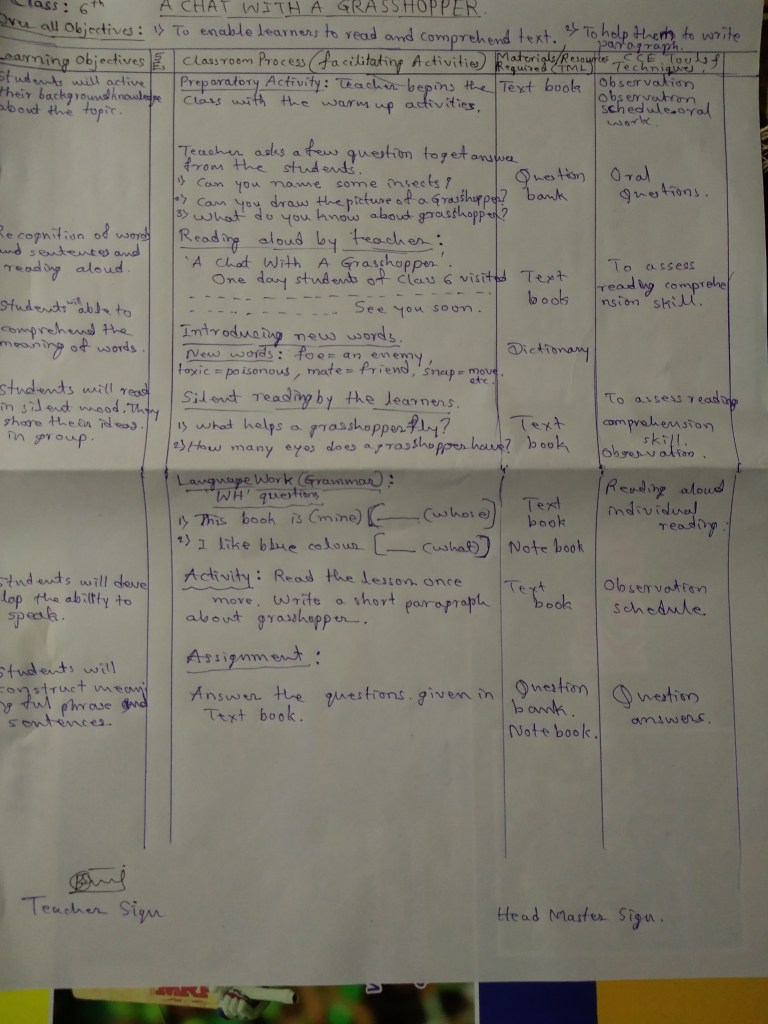 Class: 6th A CHAT WITH A GRASSHOPPER.
Over all Objectives: 1) To enable learners to read and comprehend text. 2) To help them to write
paragraph.
Learning Objectives
Students will active
their background knowledge
about the topic.
Recognition of words
and sentences and
reading aloud.
Students will able to
comprehend the
meaning of words.
Students will read
in silent mood. They
share their ideas
in group.
Students will deve
lop the ability to
speak.
Students will
construct meani
ng ful phrase and
sentences.
Classroom Process (facilitating Activities)
Preparatory Activity: Teacher begins the
Class with the warm up activities.
Teacher asks a few question to get answer
from the students.
1) Can you name some insects?
2) Can you draw the picture of a Grasshopper?
3) What do you know about grasshopper?
Reading aloud by teacher:
'A Chat With A Grasshopper'.
One day students of Class 6 visited
See you soon.
Introducing new words.
New words: foe = an enemy,
toxic = poisonous, mate = friend, snap = move.
etc.
Silent reading by the learners.
1) What helps a grasshopper fly?
2) How many eyes does a grasshopper have?
Language Work (Grammar):
'WH' question
1) This book is (mine) [___ (whose)]
2) I like blue colour [___ (what)]
Activity: Read the lesson once
more. Write a short paragraph
about grasshopper.
Assignment:
Answer the questions given in
Text book.
Materials/Resources
Required (TLM)
Text book
Question
bank
Text
book
Dictionary
Text
book
Text
book
Note book
Text
book
Question
bank.
Note book.
CCE Tools &
Techniques.
Observation
Observation
schedule oral
work.
Oral
Questions.
To assess
reading comprehe
nsion skill.
To assess reading
comprehension
skill.
Observation.
Reading aloud
individual
reading.
Observation
schedule.
Question
answers.
Teacher Sign
Head Master Sign.